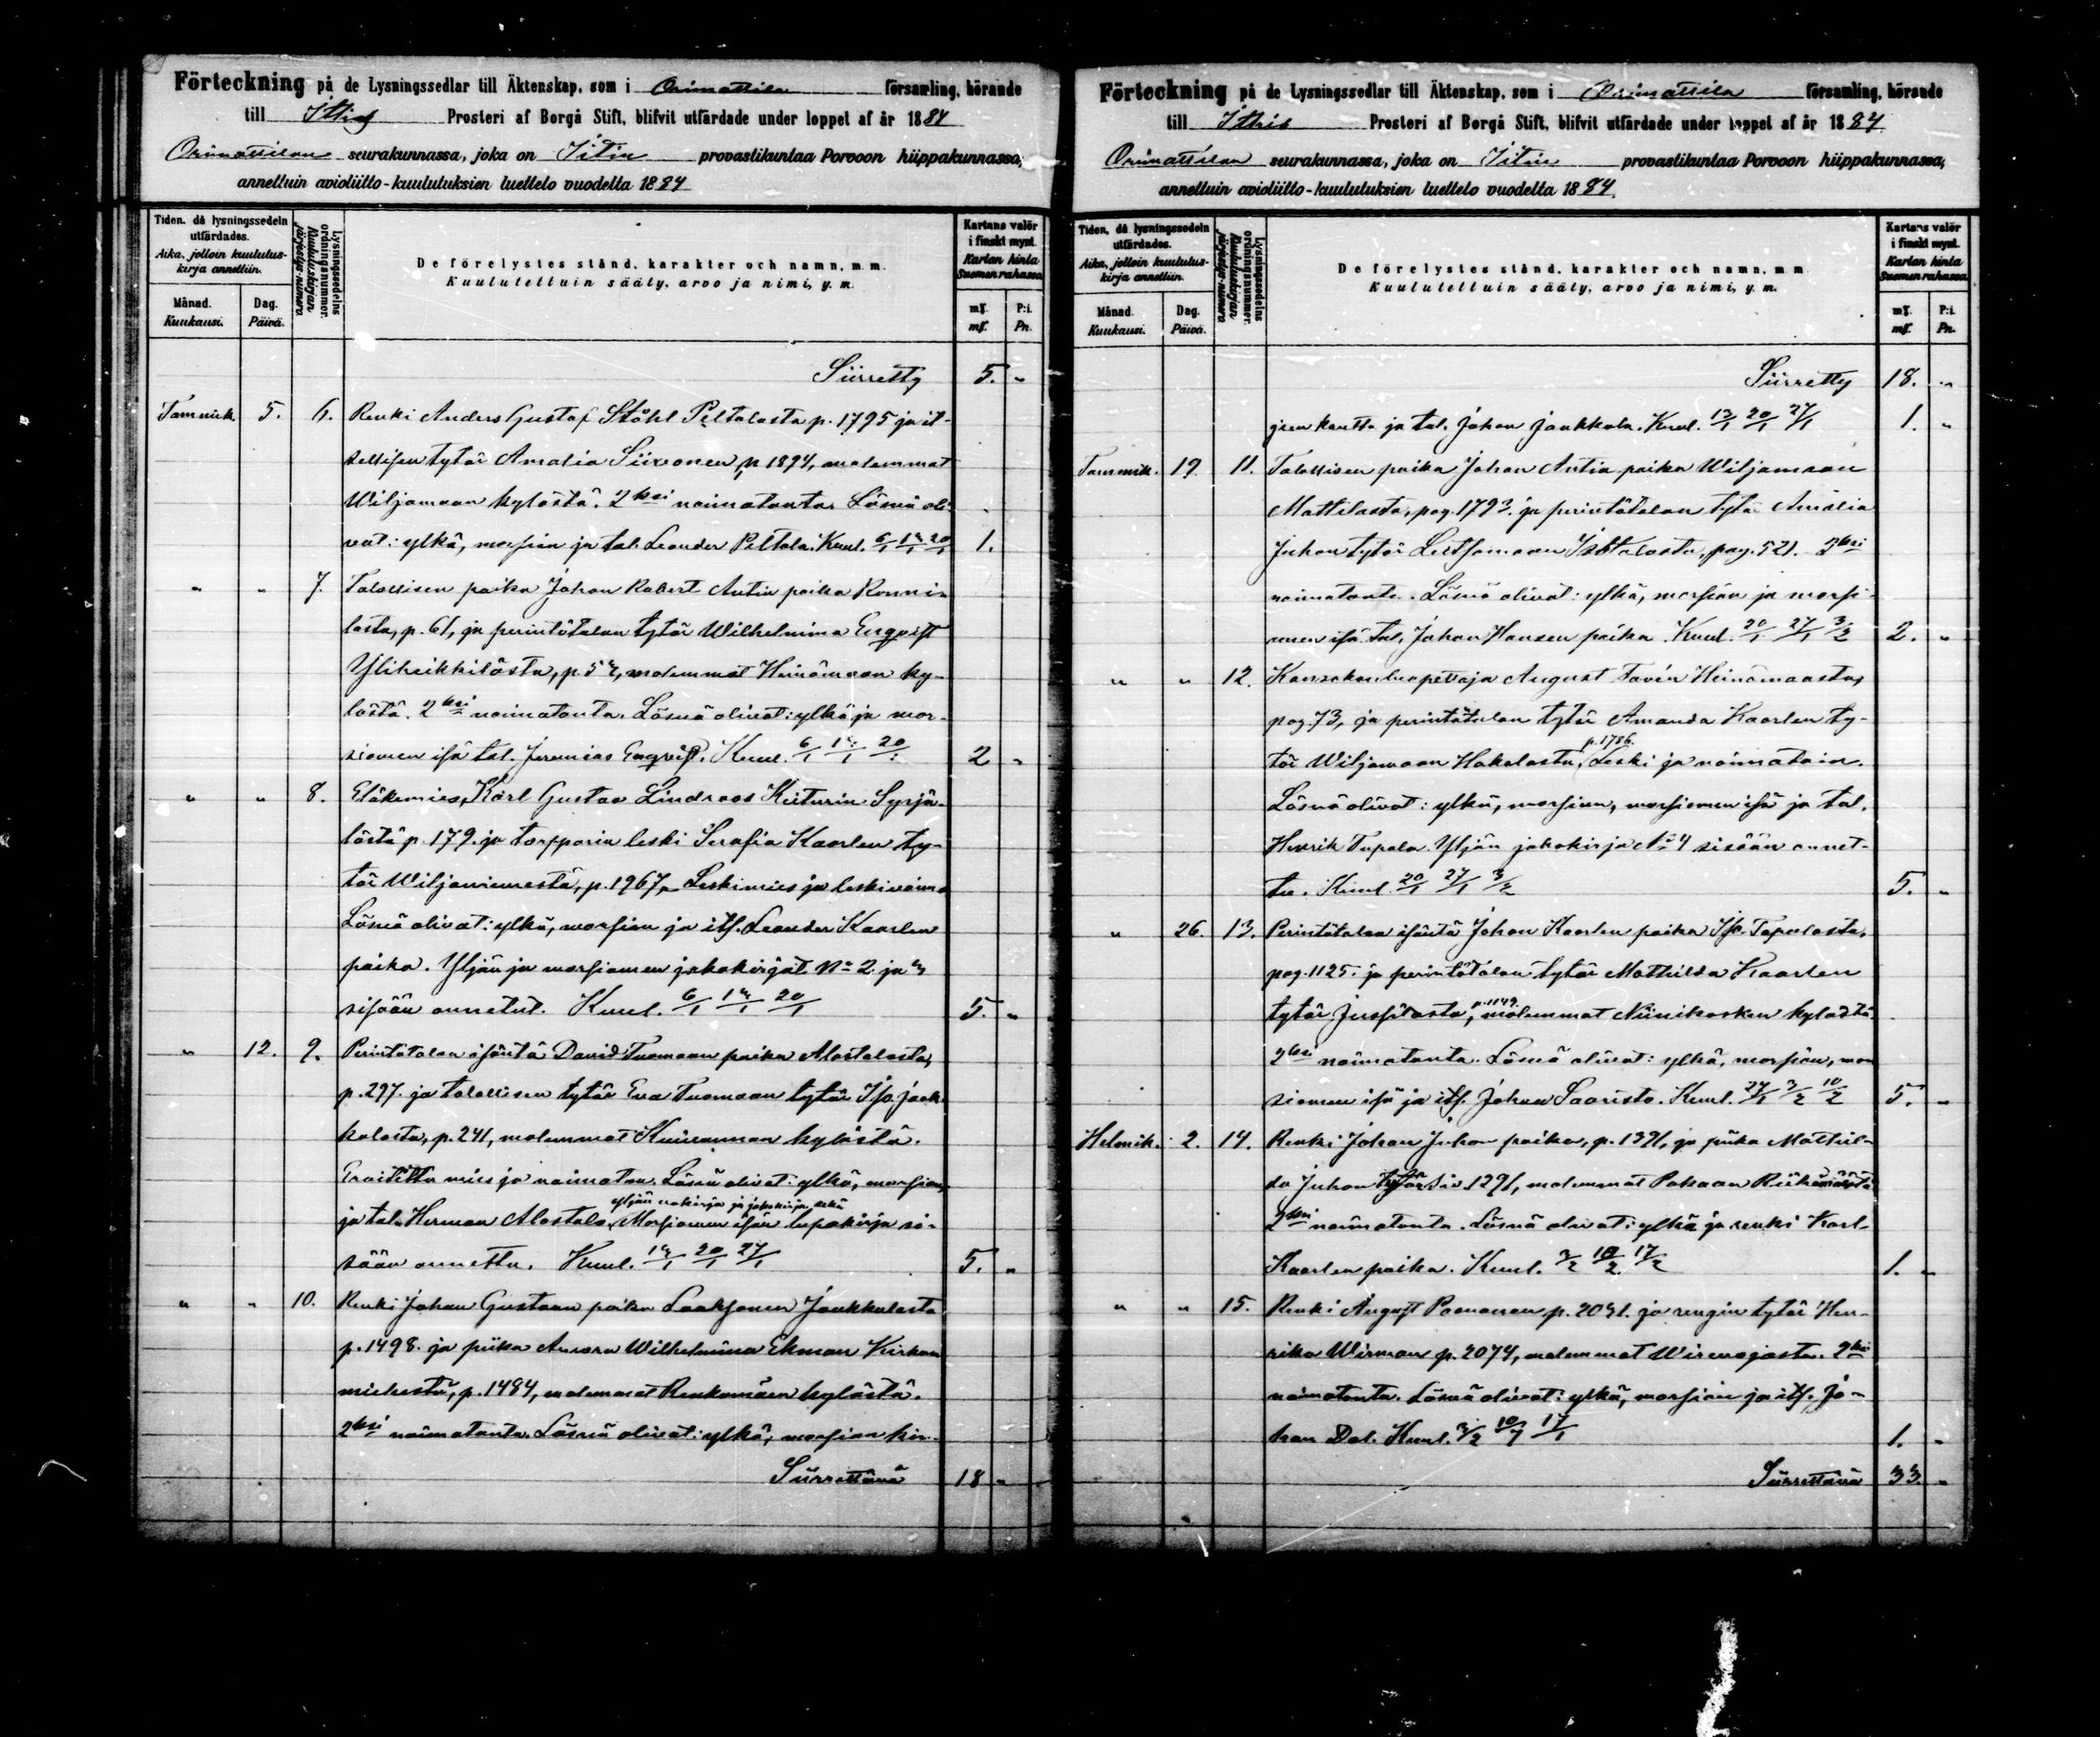 Förteckning på de Lysningssedlar till Äktenskap, som i Orimattila församling, hörande
till Ittis Prosteri af Borgå Stift, blifvit utfärdade under loppet af år 1884
Orimattilan seurakunnassa, joka on Iitin provastikuntaa Porvoon hiippakunnassa,
annettuin avioliitto-kuulutuksien luettelo vuodelta 1884
Tiden, då lysningssedeln utfärdades.
Aika, jolloin kuulutus-kirja annettiin.
Månad. Kuukausi.
Dag. Päivä.
Lysningssedelns ordningsnummer.
Kuulutuskirjan järjestys-numero
De förelystes stånd, karakter och namn, m. m.
Kuulutettuin sääty, arvo ja nimi, y. m.
Kartans valör i finskt mynt.
Kartan hinta Suomen rahassa.
mf. P:i.
mf. Pn.
Siirretty 5. "
Tammik. 5. 6. Renki Anders Gustaf Ståhl Peltolasta p. 1795 ja it-
sellisen tytär Amalia Siivonen p. 1894, molemmat
Wiljamaan kylästä. 2ksi naimatonta. Läsnä oli-
vat: ylkä, morsian ja tal. Leander Peltola. Kuul. 6/1 13/1 20/1 1.
" " 7. Talollisen poika Johan Robert Antin poika Ronni-
lasta, p. 61, ja perintötalon tytär Wilhelmina Enqvist
Yliheikkilästä, p. 53, molemmat Heinämaan ky-
lästä. 2ksi naimatonta. Läsnä olivat: ylkä ja mor-
siamen isä tal. Jeremias Enqvist. Kuul. 6/1 13/1 20/1 2 "
" " 8. Eläkemies Karl Gustav Lindroos Keiturin Syrjä-
lästä p. 179. ja torpparin leski Serafia Kaarlen ty-
tär Wiljaniemestä, p. 1967. Leskimies ja leskivaimo
Läsnä olivat: ylkä, morsian ja its. Leander Kaarlen
poika. Yljän ja morsiamen jakokirjat No 2 ja 3
sisään annetut. Kuul. 6/1 13/1 20/1 5. "
" 12. 9. Perintötalon isäntä David Tuomaan poika Alastalosta,
p. 297. ja talollisen tytär Eva Tuomaan tytär Iso Jaak-
kolasta, p. 241, molemmat Kuivannon kylästä.
Eroitettu mies ja naimaton. Läsnä olivat: ylkä, morsian,
yljän erokirja ja jakokirja sekä
ja tal. Herman Alastalo. Morsiamen isän lupakirja si-
sään annettu. Kuul. 13/1 20/1 27/1 5. "
" " 10. Renki Johan Gustaan poika Laaksonen Jaukkulasta
p. 1498. ja piika Aurora Wilhelmina Ekman Kirkon
miehestä, p. 1484, molemmat Renkomäen kylästä.
2ksi naimatonta. Läsnä olivat: ylkä, morsian kir-
Siirrettävä 18 "
Förteckning på de Lysningssedlar till Äktenskap, som i Orimattila församling, hörande
till Ithis Prosteri af Borgå Stift, blifvit utfärdade under loppet af år 1884
Orimattilan seurakunnassa, joka on Iitin provastikuntaa Porvoon hiippakunnassa,
annettuin avioliitto-kuulutuksien luettelo vuodelta 1884.
Tiden, då lysningssedeln utfärdades.
Aika, jolloin kuulutus-kirja annettiin.
Månad. Kuukausi.
Dag. Päivä.
Lysningssedelns ordningsnummer.
Kuulutuskirjan järjestys-numero
De förelystes stånd, karakter och namn, m. m.
Kuulutettuin sääty, arvo ja nimi, y. m.
Kartans valör i finskt mynt.
Kartan hinta Suomen rahassa.
mf. P:i.
mf. Pn.
Siirretty 18. "
jeen kautta ja tal. Johan Jaukkola. Kuul. 13/1 20/1 27/1 1. "
Tammik. 19. 11. Talollisen poika Johan Antin poika Wiljamaan
Mattilasta, pag. 1793. ja perintötalon tytär Amalia
Juhon tytär Leitsamaan Isotalosta, pag. 521. 2ksi
naimatonta. Läsnä olivat: ylkä, morsian ja morsi-
amen isä tal. Johan Hansen poika. Kuul. 20/1 27/1 3/2 2. "
" " 12. Kansakoulunopettaja August Favén Heinämaasta,
pag. 73, ja perintötalon tytär Amanda Kaarlen ty-
p. 1786.
tär Wiljamaan Hakalasta, Leski ja naimatoin.
Läsnä olivat: ylkä, morsian, morsiamen isä ja tal.
Henrik Tupala. Yljän jakokirja No 4 sisään annet-
tu. Kuul. 20/1 27/1 3/2 5. "
" 26. 13. Perintötalon isäntä Johan Kaarlen poika Iso-Tapolasta,
pag. 1125. ja perintötalon tytär Mathilda Kaarlen
p. 1149.
tytär Jussilasta, molemmat Niinikosken kylästä
2ksi naimatonta. Läsnä olivat: ylkä, morsian, mor-
siamen isä ja its. Johan Saaristo. Kuul. 27/1 3/2 10/2 5. "
Helmik. 2. 14. Renki Johan Juhon poika, p. 1391, ja piika Mathil-
da Juhon tytär siv. 1291, molemmat Pakaan
2ksi naimatonta. Läsnä olivat: ylkä ja renki Karl
Kaarlen poika. Kuul. 3/2 10/2 17/2 1. "
" " 15. Renki August Paananen p. 2031. ja rengin tytär Hen-
rika Wirman p. 2074, molemmat Wirenojasta. 2ksi
naimatonta. Läsnä olivat: ylkä, morsian ja its. Jo-
han Dal. Kuul. 3/2 10/1 17/1 1. "
Siirrettävä 33. "